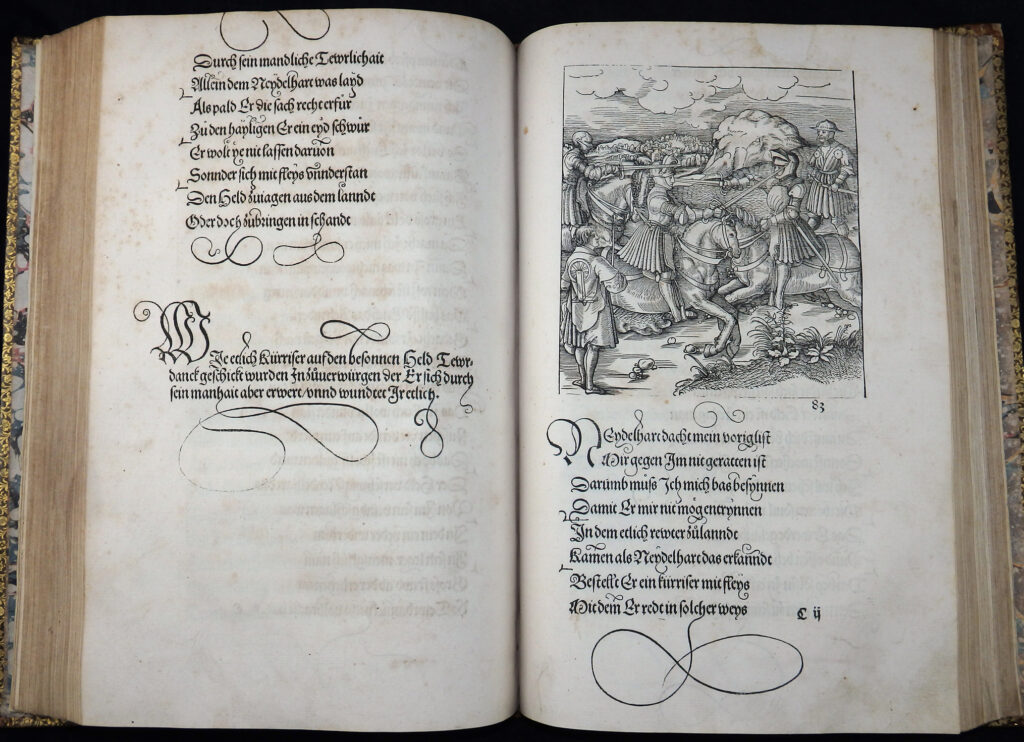 Durch sein mandliche Tewrlichait
Allein dem Neydelhart was layd
Als pald Er die sach recht erfůr
Zů den hayligen Er ein eyd schwůr
Er wolt ye nit lassen daruon
Sonnder sich mit fleys vnnderstan
Den Held zůiagen aus dem lanndt
Oder doch zůbringen in schandt
Wie etlich Kürriser auf den besonnen Held Tewr-
danck geschickt wurden In zůuerwürgen der Er sich durch
sein manhait aber erwert/vnnd wundtet Ir etlich.
83
Neydelhart dacht mein vorig list
Mir gegen Im nit geratten ist
Darumb můß Ich mich bas besynnen
Damit Er mir nit mög entrynnen
In dem etlich rewter zůlanndt
Kamen als Neydelhart das erkanndt
Bestellt Er ein kürriser mit fleys
Mit dem Er redt in solcher weys
C ij